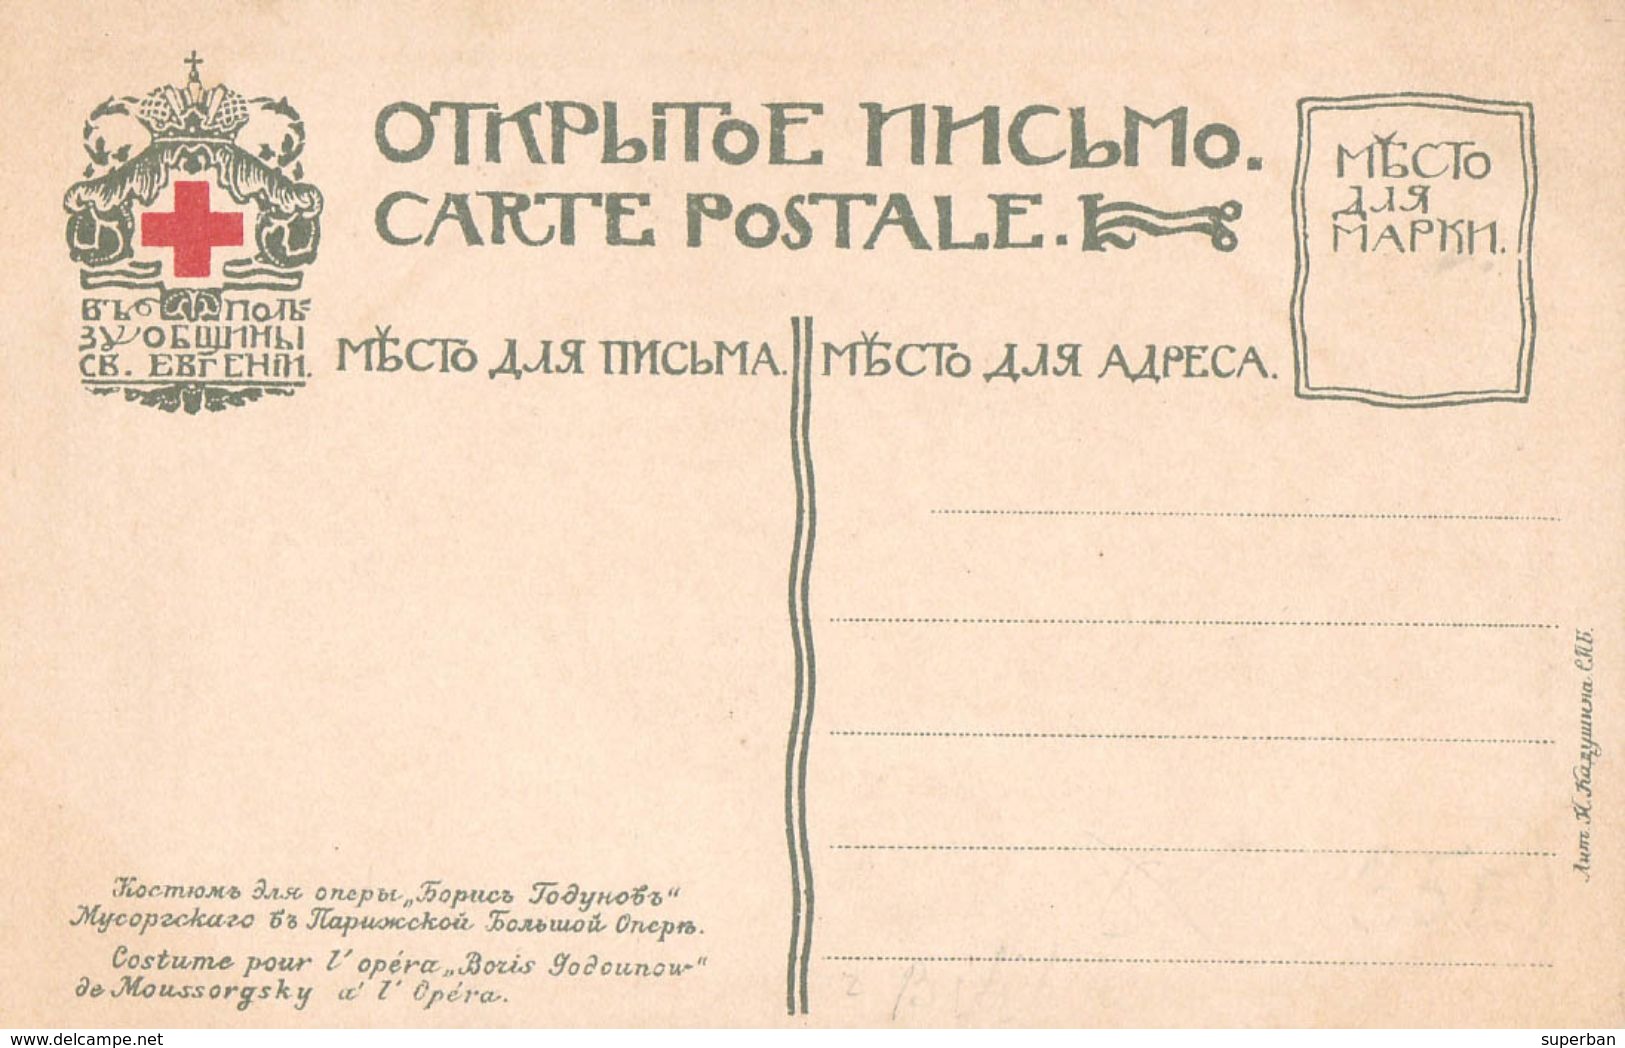 ОТКРЫТОЕ ПИСЬМО.
CARTE POSTALE.
МѢСТО
ДЛЯ
МАРКИ.
ВЪ ПОЛЬ=
ЗУ ОБЩИНЫ
СВ. ЕВГЕНІИ.
МѢСТО ДЛЯ ПИСЬМА.
МѢСТО ДЛЯ АДРЕСА.
Костюмъ для оперы „Борисъ Годуновъ“
Мусоргскаго въ Парижской Большой Оперѣ.
Costume pour l'opéra „Boris Godounow“
de Moussorgsky a' l'Opéra.
Лит. Н. Кадушина С.П.Б.
www.delcampe.net
superban